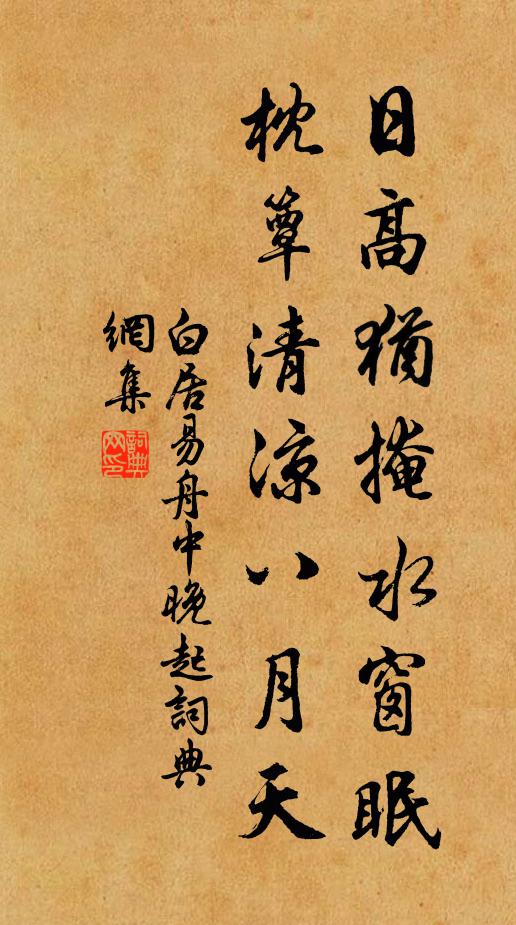 日高猶掩水窗眠
枕簟清涼八月天
白居易舟中晚起詞典
網集
詞典
网印